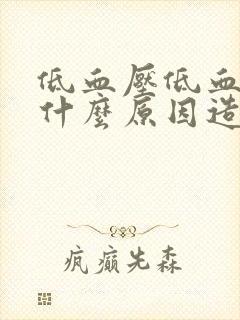 低血壓低血
什麼原因造
疯癫先森